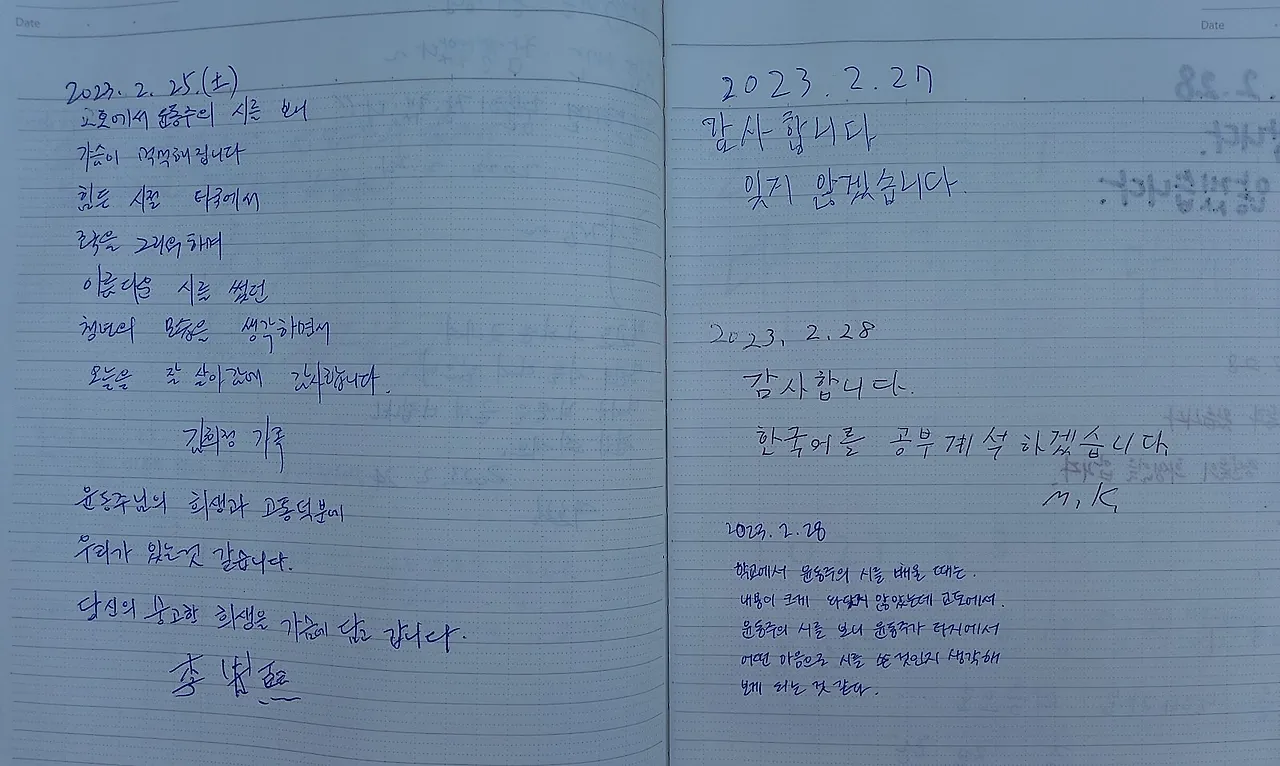 Date
2023. 2. 25.(土)
교토에서 윤동주의 시를 보니
가슴이 먹먹해집니다
힘든 시절 타국에서
조국을 그리워하며
아름다운 시를 썼던
청년의 모습을 생각하면서
오늘을 잘 살아감에 감사합니다.
김희정 가족
윤동주님의 희생과 고통덕분에
우리가 있는것 같습니다.
당신의 숭고한 희생을 가슴에 담고 갑니다.
李
Date
2023. 2. 27
감사합니다
잊지 않겠습니다.
2023. 2. 28
감사합니다.
한국어를 공부계석하겠습니다.
M, K
2023. 2. 28
학교에서 윤동주의 시를 배울 때는.
내용이 크게 와닿지 않았는데 교토에서.
윤동주의 시를 보니 윤동주가 타지에서
어떤 마음으로 시를 쓴것인지 생각해
보게 되는 것 같다.